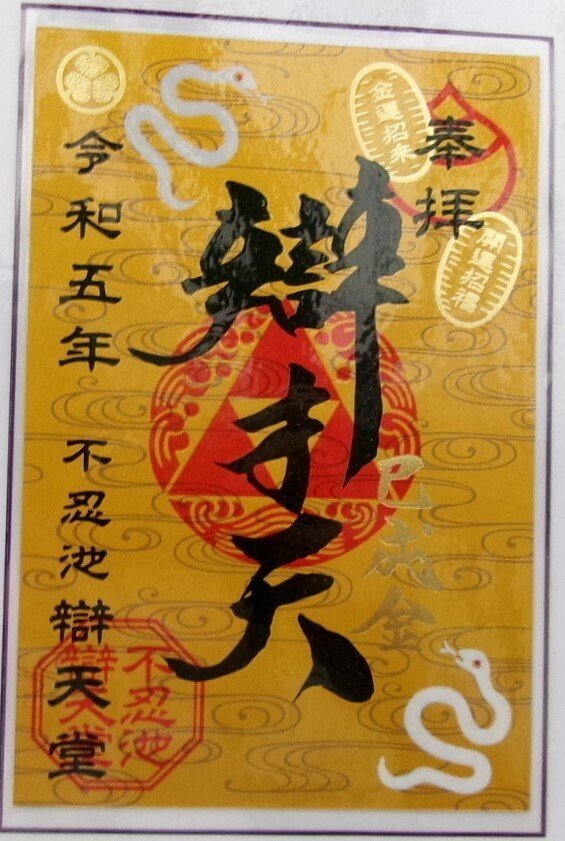 奉拝
金運招来
開運招福
辯才天
巳成金
令和五年 不忍池辯天堂
不忍池
辯天堂